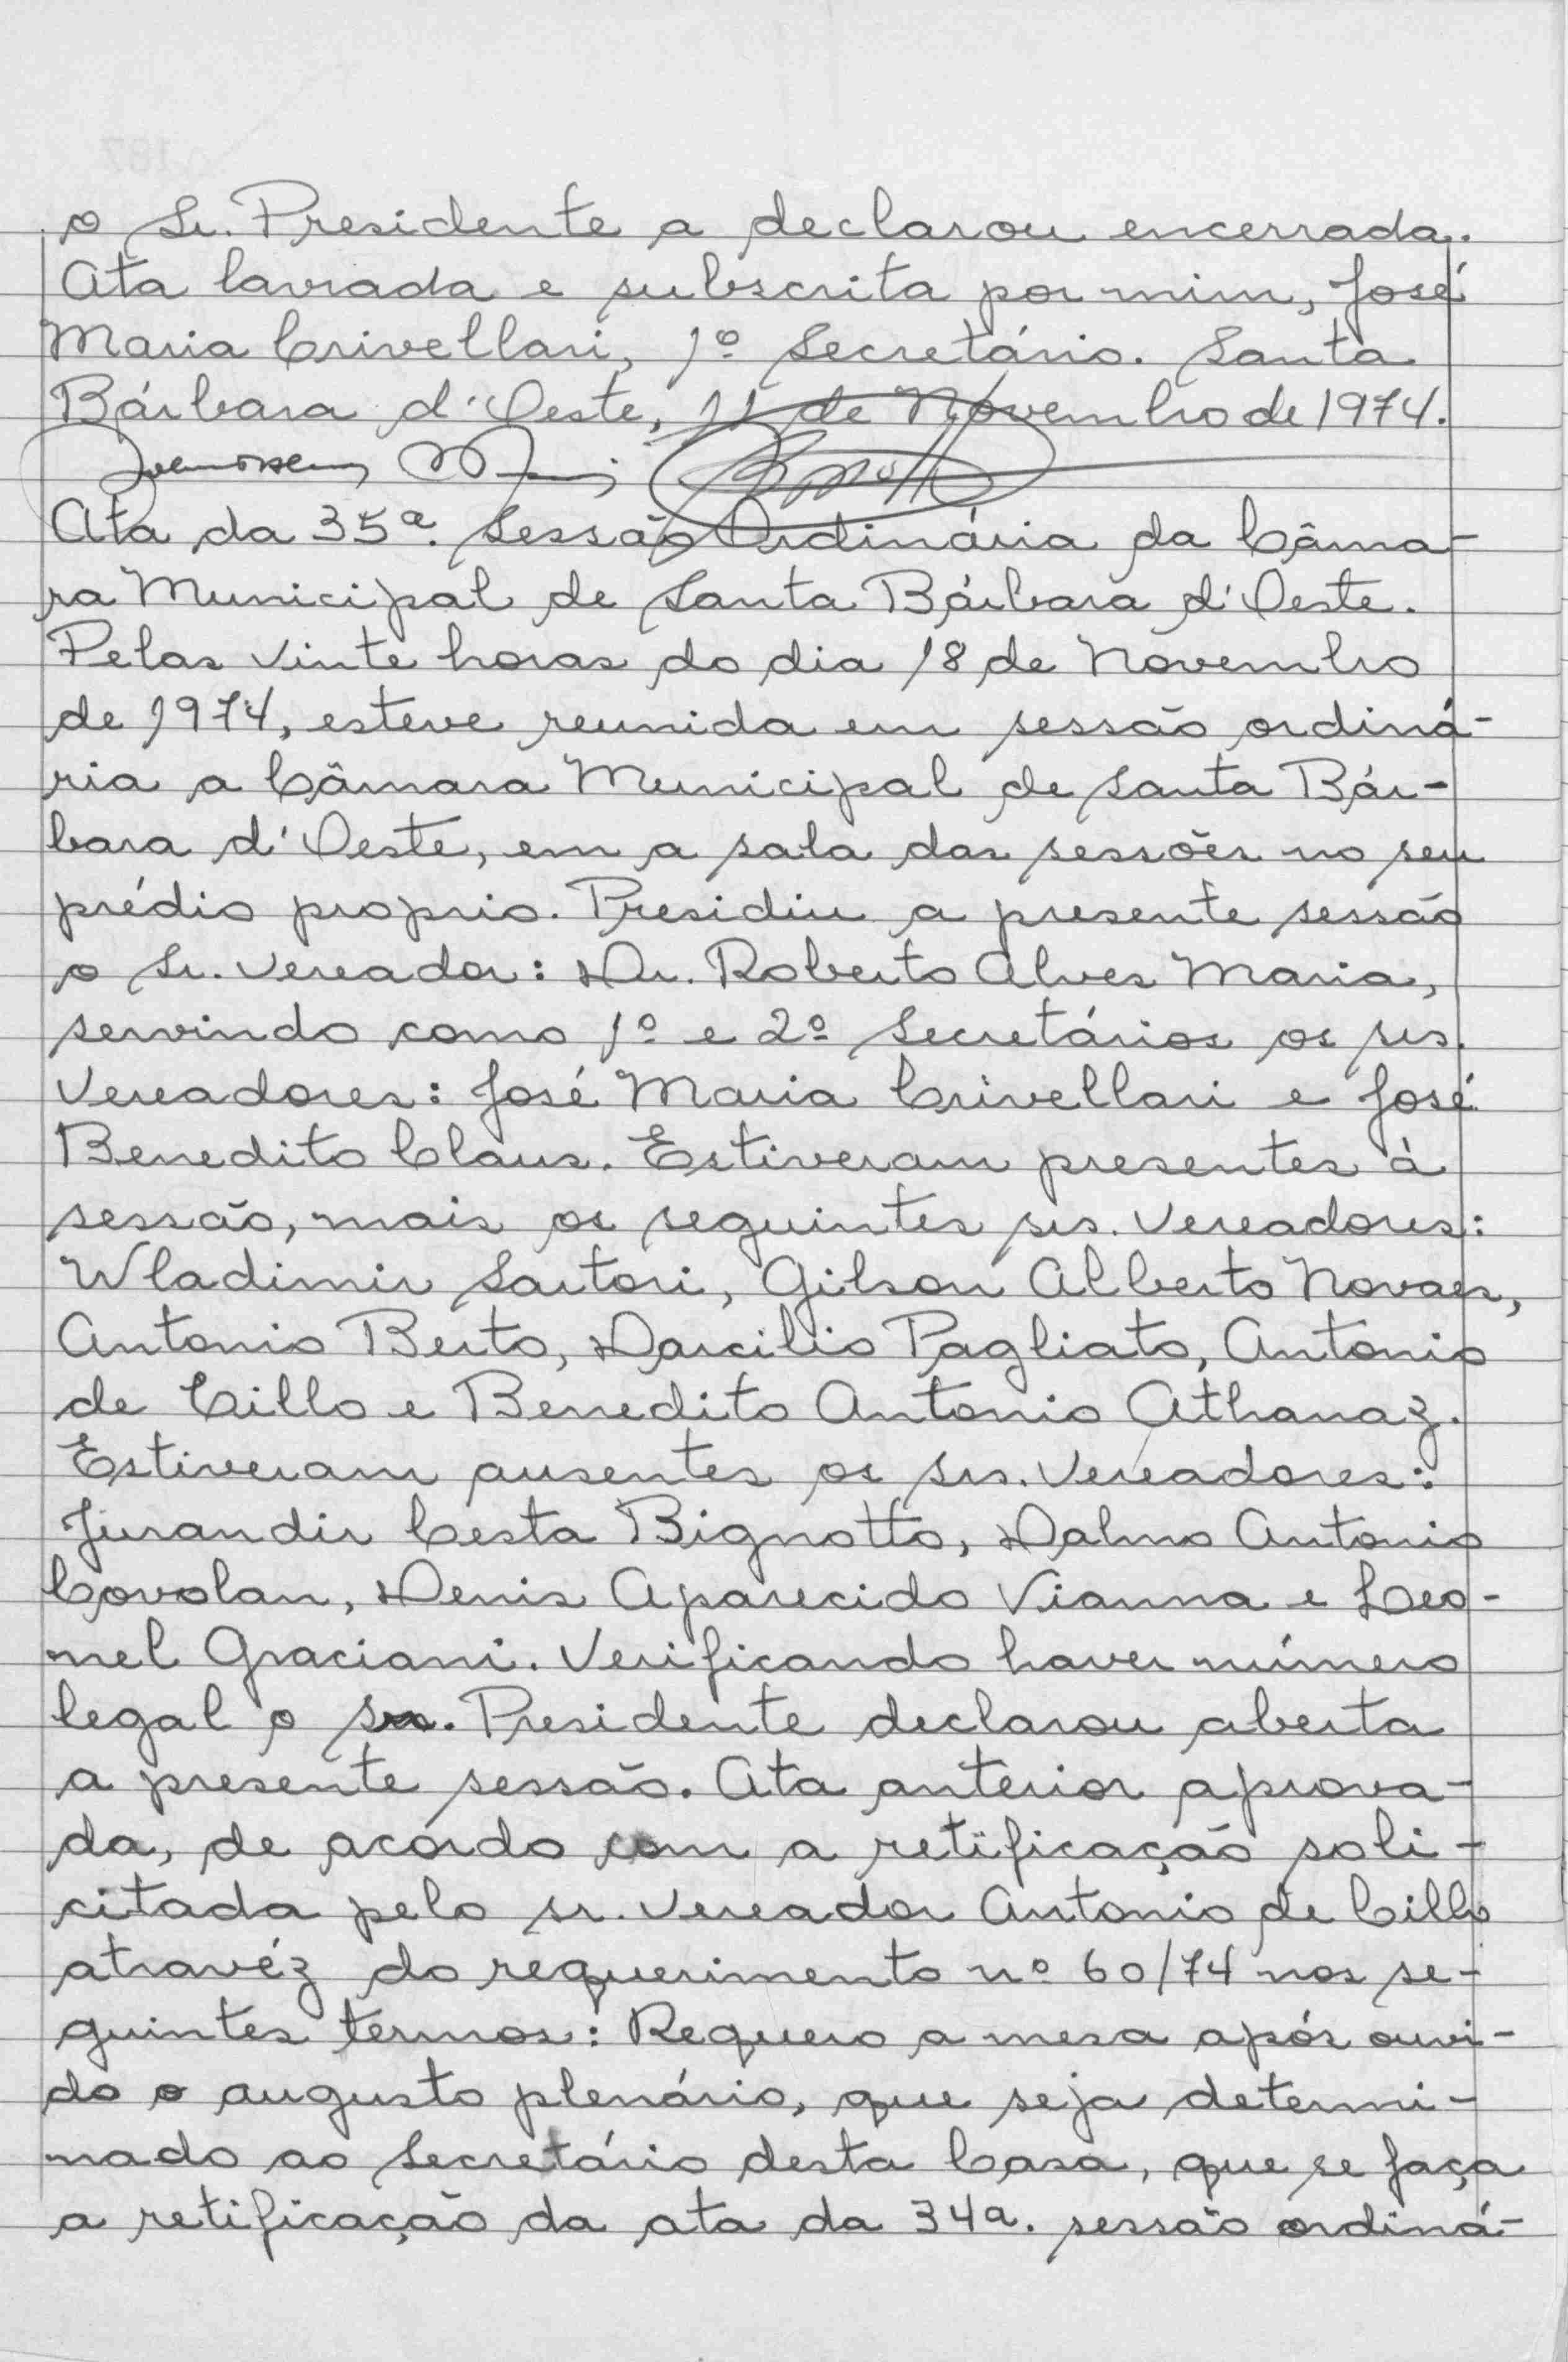 o Sr. Presidente a declarou encerrada.
Ata lavrada e subscrita por mim, José
Maria Crivellari, 1º Secretário. Santa
Bárbara d'Oeste, 11 de Novembro de 1974.
Ata da 35ª. Sessão Ordinária da Câma-
ra Municipal de Santa Bárbara d'Oeste.
Pelas vinte horas do dia 18 de Novembro
de 1974, esteve reunida em sessão ordiná-
ria a Câmara Municipal de Santa Bár-
bara d'Oeste, em a sala das sessões no seu
prédio proprio. Presidiu a presente sessão
o Sr. Vereador: Dr. Roberto Alves Maria,
servindo como 1º e 2º Secretários os srs.
Vereadores: José Maria Crivellari e José
Benedito Claus. Estiveram presentes à
sessão, mais os seguintes srs. Vereadores:
Wladimir Sartori, Gilson Alberto Novaes,
Antonio Berto, Darcilio Pagliato, Antonio
de Cillo e Benedito Antonio Athanaz.
Estiveram ausentes os srs. Vereadores:
Jurandir Cesta Bignotto, Dalmo Antonio
Covolan, Denis Aparecido Vianna e Leo-
nel Graciani. Verificando haver número
legal o Sr. Presidente declarou aberta
a presente sessão. Ata anterior aprova-
da, de acôrdo com a retificação soli-
citada pelo sr. Vereador Antonio de Cillo
atravéz do requerimento nº 60/74 nos se-
guintes termos: Requero a mesa após ouvi-
do o augusto plenário, que seja determi-
nado ao Secretário desta Casa, que se faça
a retificação da ata da 34a. sessão ordiná-